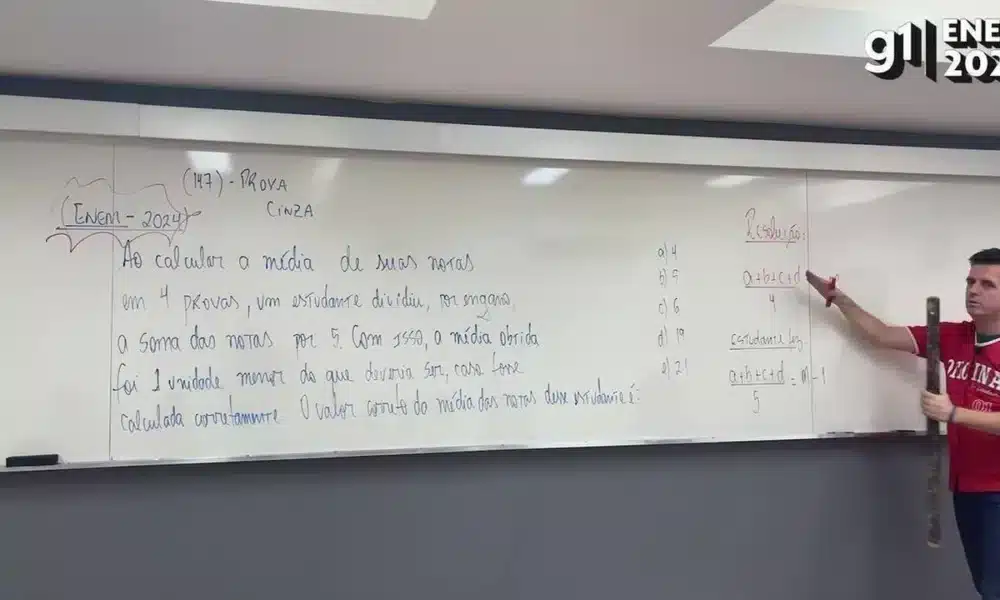 g1 ENE
202
(147) - PROVA
CINZA
(ENEM - 2024)
Ao calcular a média de suas notas
em 4 PROVAS, um estudante dividiu, por engano,
a soma das notas por 5. Com isso, a média obtida
foi 1 unidade menor do que deveria ser, caso fosse
calculada corretamente. O valor correto da média das notas desse estudante é:
a) 4
b) 5
c) 6
d) 19
e) 21
Resolução:
a+b+c+d
4
estudante fez
a+b+c+d = M - 1
5